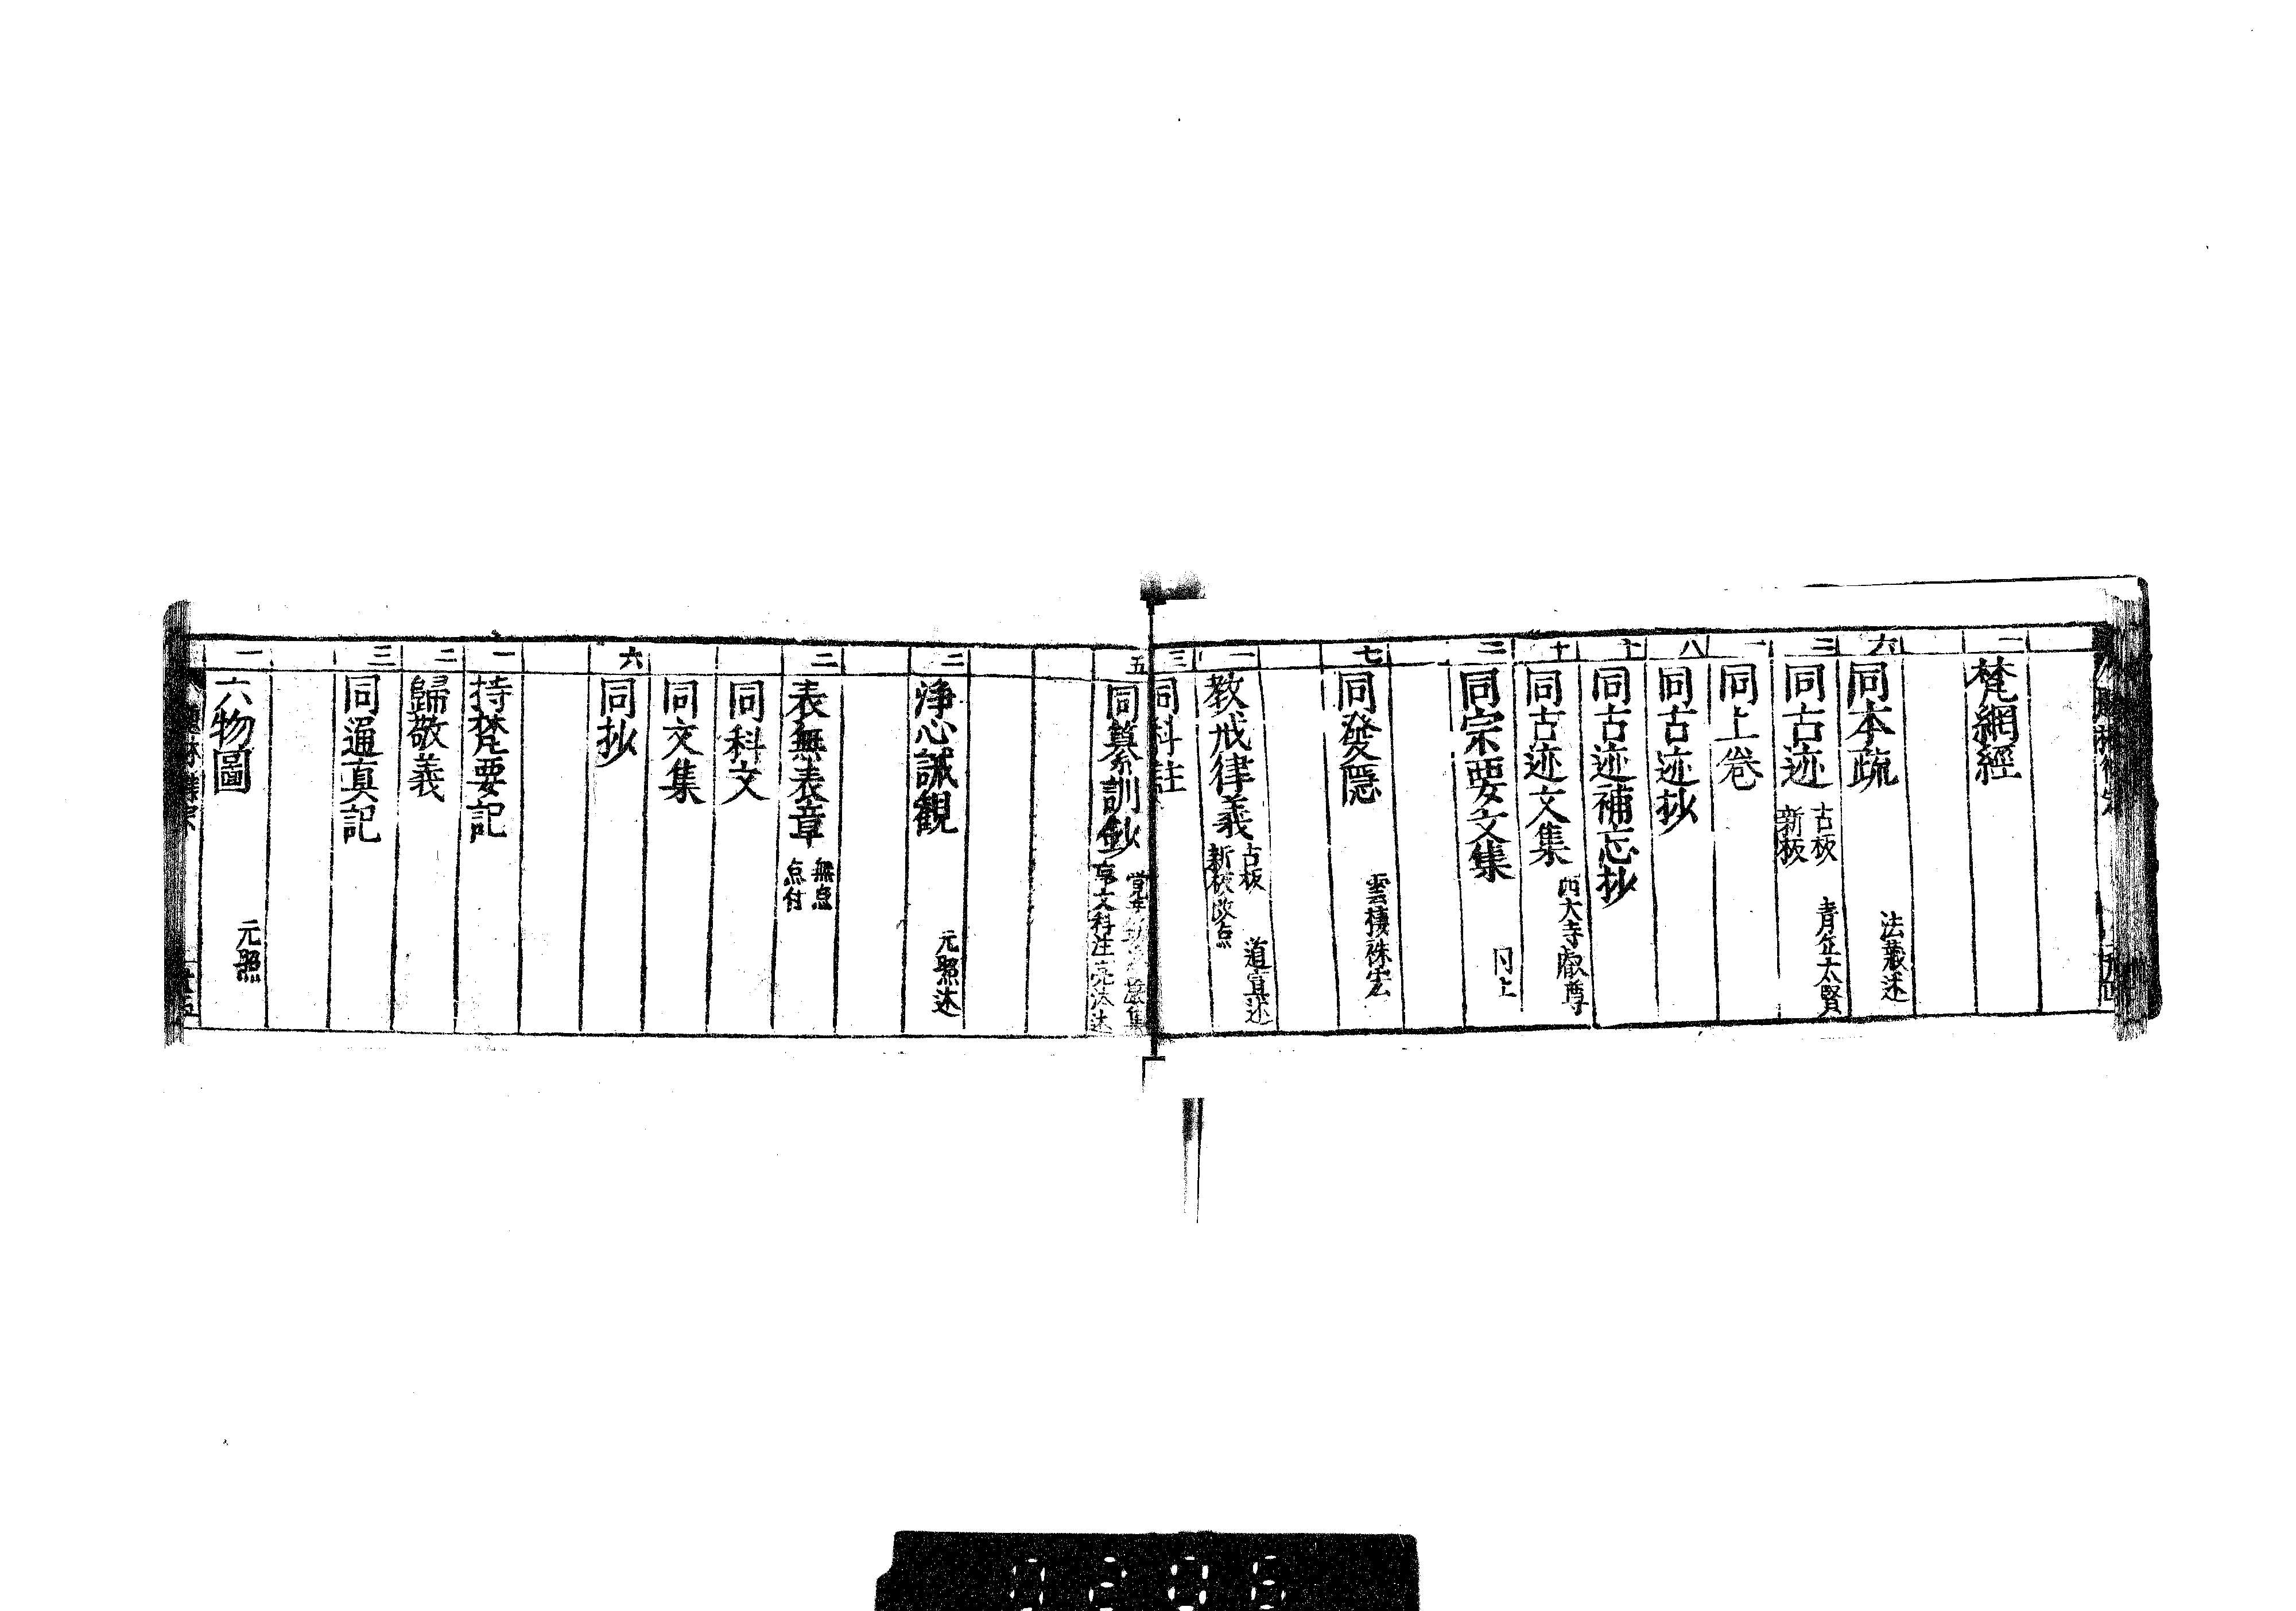 一 梵網經
六 同本疏 法蔵述
三 同古迹 古板 新板 青丘太賢
一 同上巻
八 同古迹抄
十 同古迹補忘抄
十 同古迹文集 西大寺叡尊
二 同宗要文集 同上
七 同發隠 雲棲袾宏
一 教戒律義 古板 新板改点 道宣述
三 同科註
五 同纂訓鈔
二 浄心誡観 元照述
二 表無表章 無点 点付
同科文
同文集
六 同抄
一 持梵要記
二 歸敬義
三 同通真記
一 六物圖 元照